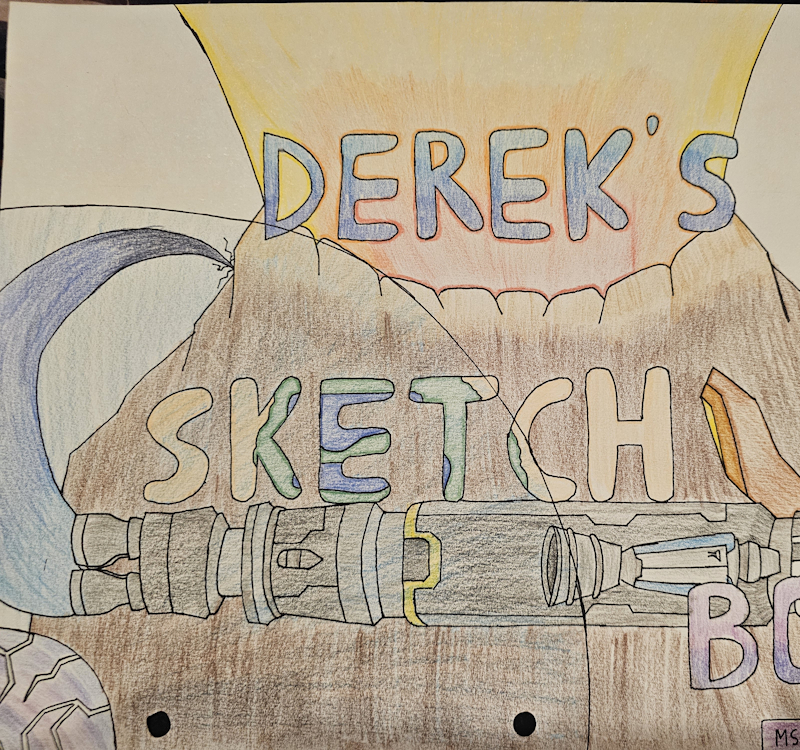 DEREK'S
SKETCH
BO
MS